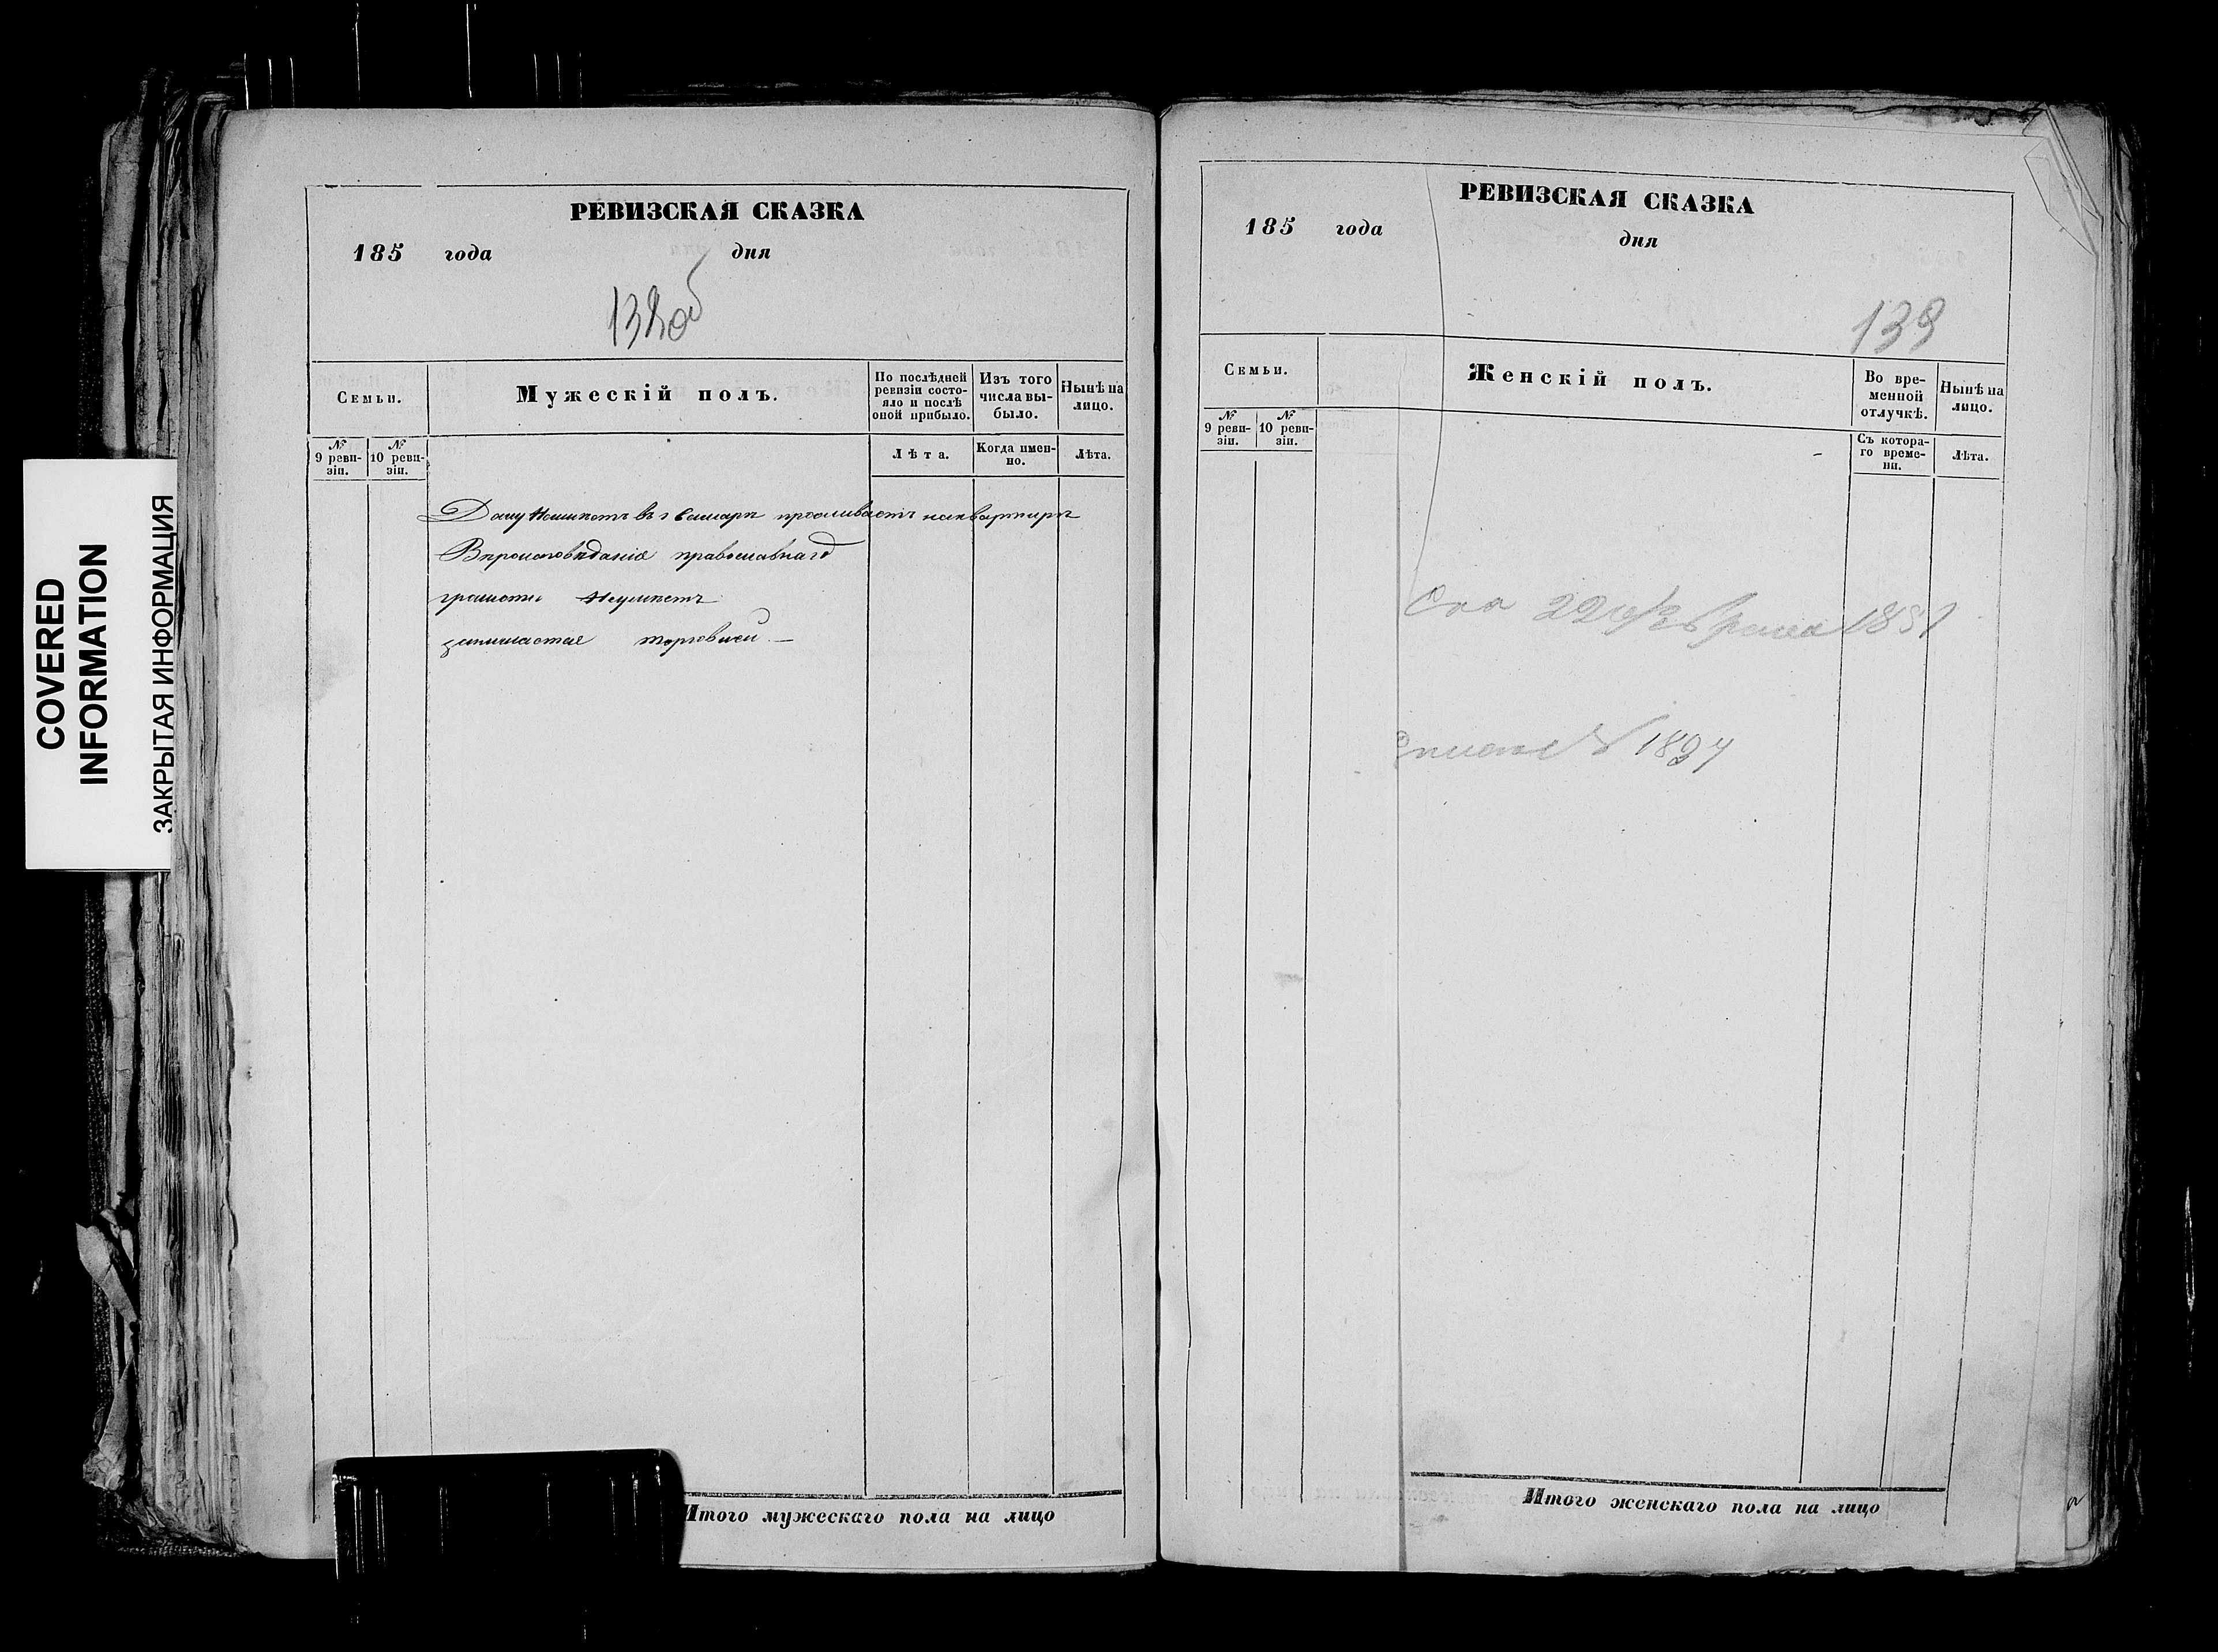 COVERED
INFORMATION
ЗАКРЫТАЯ ИНФОРМАЦИЯ
РЕВИЗСКАЯ СКАЗКА
185 года дня
138об
Семьи.
Мужескій полъ.
По послѣдней ревизіи состо-
яло и послѣ оной прибыло.
Изъ того числа вы-
было.
Нынѣ на лицо.
№ 9 реви-
зіи.
№ 10 реви-
зіи.
Лѣта.
Когда имен-
но.
Лѣта.
Дому неимѣетъ въ г Самарѣ проживаетъ наквартирѣ
Вѣроисповѣданія православнаго
грамоты неумѣетъ
занимается торговлей. —
Итого мужескаго пола на лицо
РЕВИЗСКАЯ СКАЗКА
185 года дня
139
Семьи.
Женскій полъ.
Во вре-
менной отлучкѣ.
Нынѣ на лицо.
№ 9 реви-
зіи.
№ 10 реви-
зіи.
Съ котора-
го време-
ни.
Лѣта.
22 февраля 1851
№ 1894
Итого женскаго пола на лицо